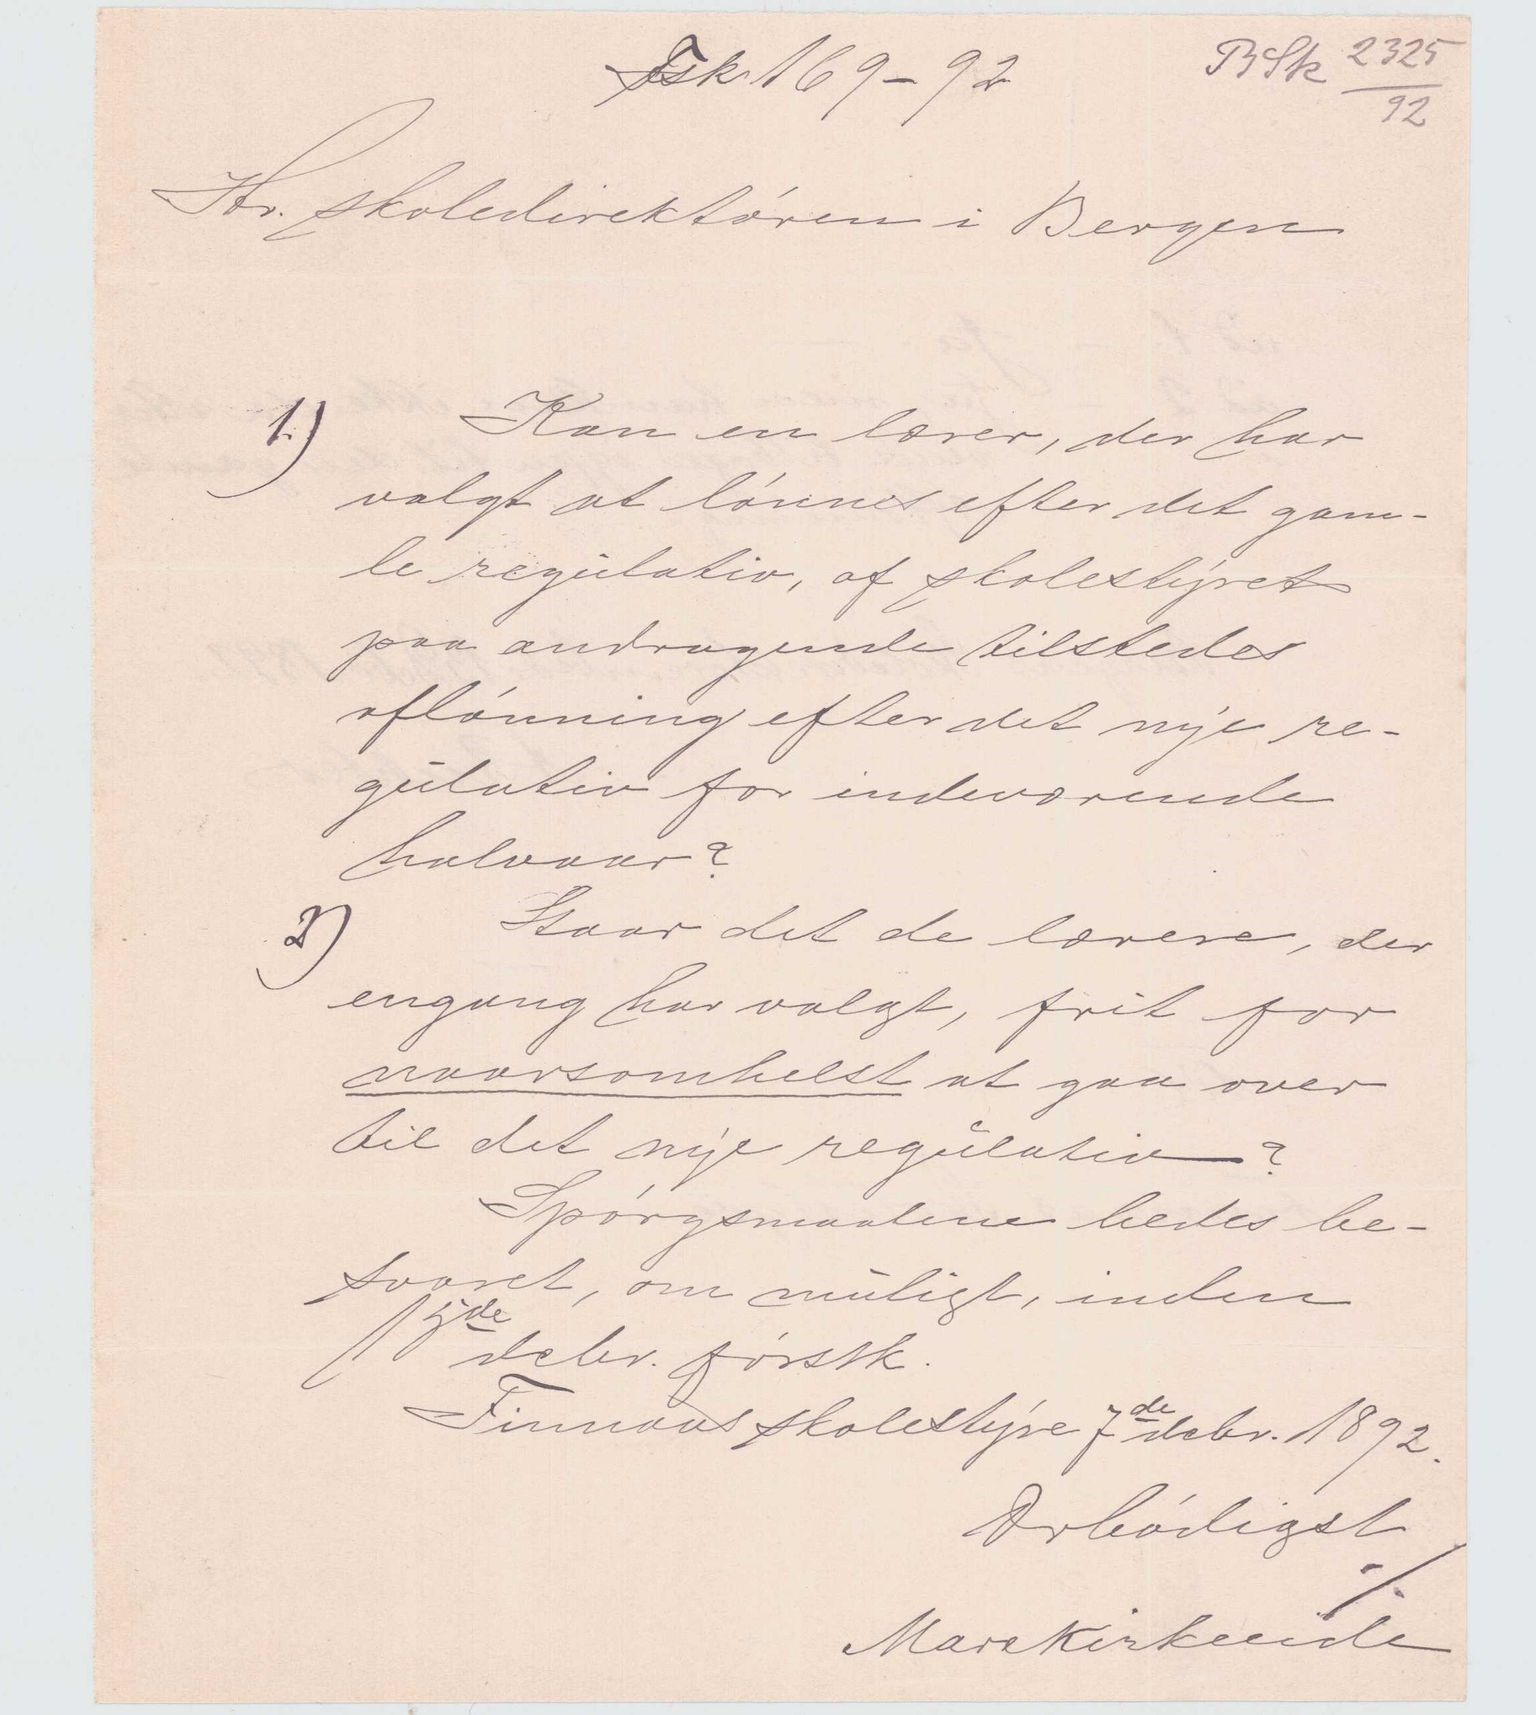 Fsk 169-92
BSk 2325
92
Hr. skoledirektøren i Bergen
1.) Kan en lærer, der har
valgt at lønnes efter det gam-
le regulativ, af skolestyret
paa andragende tilstedes
aflønning efter det nye re-
gulativ for indeværende
halvaar?
2) Staar det de lærere, der
engang har valgt, frit for
naarsomhelst at gaa over
til det nye regulativ?
Spørgsmaalene bedes be-
svaret, om muligt, inden
15de decbr. førstk.
Finnaas skolestyre 7de decbr. 1892.
Ærbødigst